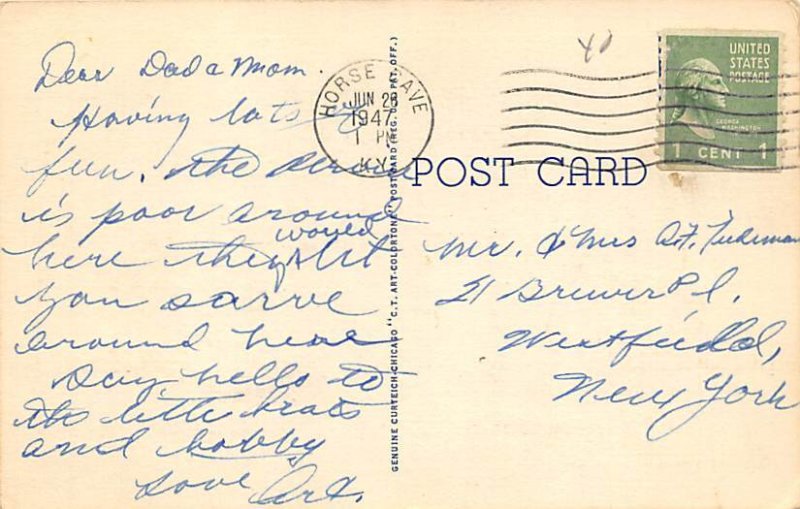 Dear Dad a Mom.
Having lots of
fun. the
is poor around
would
here they let
you sarve
around hear
Say hello to
the little brats
and bobby
Love Art.
GENUINE CURTEICH-CHICAGO "C.T. ART-COLORTONE" POST CARD (REG. U.S. PAT. OFF.)
HORSE CAVE
JUN 23
1947
1 PM
KY.
40
UNITED
STATES
POSTAGE
GEORGE
WASHINGTON
1 CENT 1
POST CARD
Mr. & Mrs A.F.
21 Brewer Pl.
Westfield,
New York